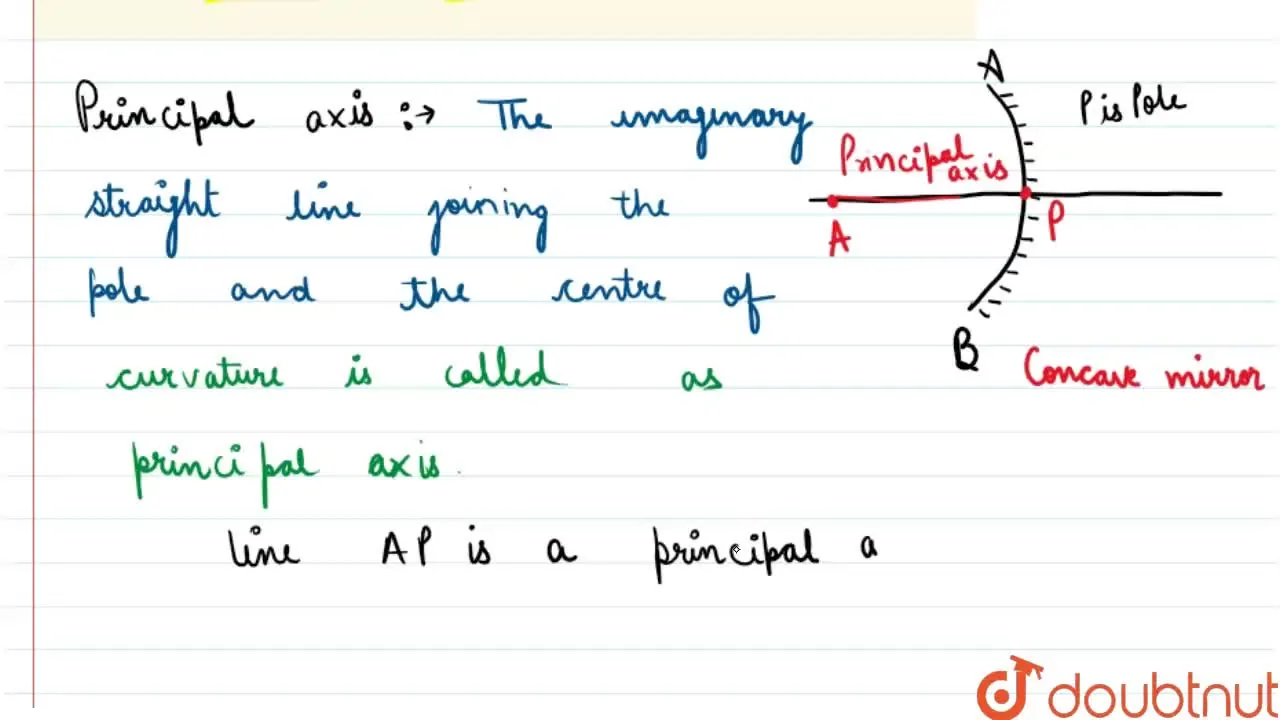 Principal axis :→ The imaginary
straight line joining the
pole and the centre of
curvature is called as
principal axis.
line AP is a principal a
A
P is Pole
Principal
axis
A
P
B
Concave mirror
doubtnut